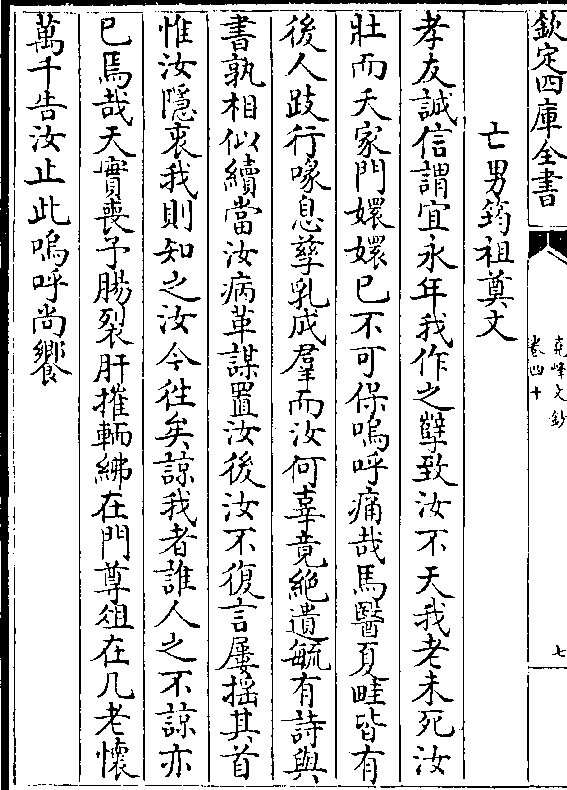 欽定四庫全書
堯峰文鈔
卷四十
七
亡男筠祖奠文
孝友誠信謂宜永年我作之孽致汝不天我老未死汝
壯而夭家門嬛嬛已不可保嗚呼痛哉馬醫夏畦皆有
後人跂行喙息孳乳成羣而汝何辜竟絶遺毓有詩與
書孰相似續當汝病革謀置汝後汝不復言屢揺其首
惟汝隱衷我則知之汝今往矣諒我者誰人之不諒亦
已焉哉天實喪予腸裂肝摧輀紼在門尊俎在几老懷
萬千告汝止此嗚呼尚饗